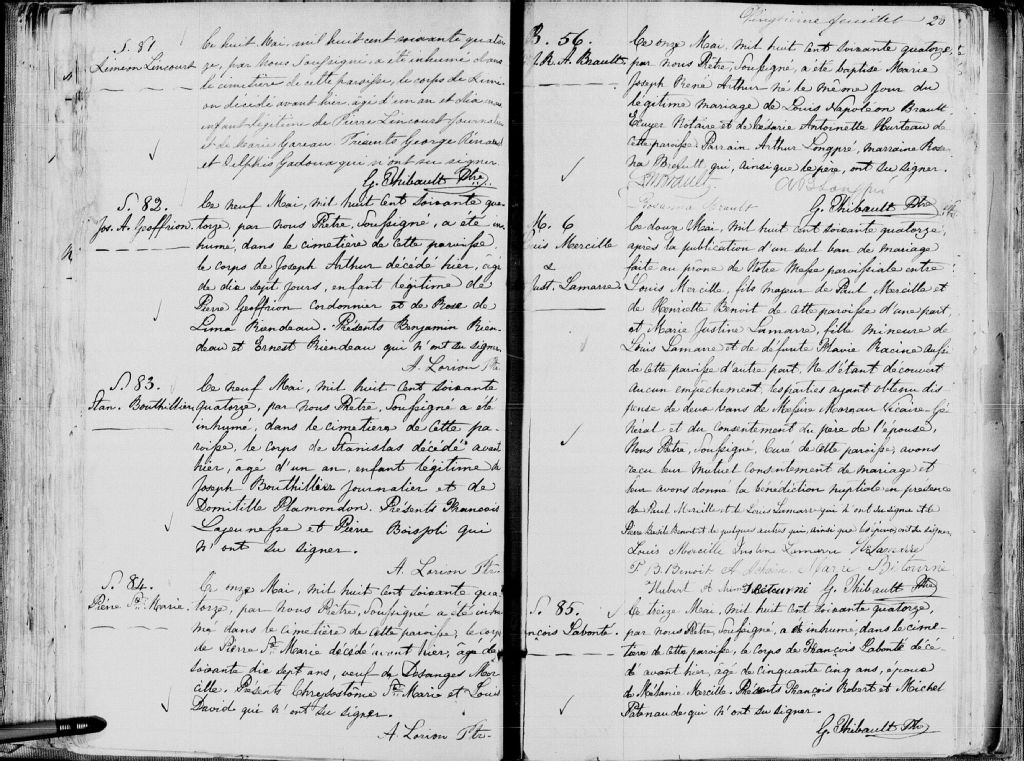 S. 81
Limem Lincourt
Ce huit Mai, mil huit cent soixante quator
ze, par Nous Soussigné, a été inhumé dans
le cimetière de cette paroisse, le corps de Limé-
on décédé avant hier, agé d'un an et dix mois
enfant légitime de Pierre Lincourt journalier
& de Marie Gareau. Présents George Rénaud
et Delphis Gadoua qui n'ont su signer.
G. Thibault Ptre
S. 82.
Jos. A. Geoffrion
Ce neuf Mai, mil huit cent soixante qua-
torze, par nous Prêtre, Soussigné, a été in-
humé, dans le cimetière de cette paroisse,
le corps de Joseph Arthur décédé hier, âgé
de dix sept jours, enfant légitime de
Pierre Geoffrion Cordonnier et de Rose de
Lima Riendeau. Présents Benjamin Rien-
deau et Ernest Riendeau qui n'ont su signer.
A. Lorion Ptr.
S. 83.
Stan. Bouthillier
Ce neuf Mai, mil huit cent soixante
quatorze, par nous Prêtre, Soussigné a été
inhumé, dans le cimetière de cette pa-
roisse, le corps de Stanislas décédé avant
hier, agé d'un an, enfant légitime de
Joseph Bouthillier journalier et de
Domitille Plamondon. Présents François
Lajeunesse et Pierre Boisjoli qui
n'ont su signer.
A. Lorion Ptr.
S. 84.
Pierre Ste Marie
Ce onze Mai, mil huit cent soixante qua-
torze, par nous Prêtre, Soussigné a été inhu-
mé dans le cimetière de cette paroisse, le corps
de Pierre Ste Marie décédé avant hier, âgé de
soixante dix sept ans, veuf de Desanges Mer-
cille. Présents Chrysostome Ste Marie et Louis
David qui n'ont su signer.
A. Lorion Ptr.
Vingtième feuillet 20
B. 56.
J. R. A. Brault
Ce onze Mai, mil huit cent soixante quatorze,
par nous Prêtre, Soussigné, a été baptisé Marie
Joseph René Arthur né le même jour du
légitime mariage de Louis Napoléon Brault
Ecuyer Notaire et de Césarie Antoinette Hurteau de
cette paroisse. Parrain Arthur Longpré, marraine Rosan-
na Brault, qui, ainsi que le père, ont su signer.
Rosanna Brault
G. Thibault Ptre
M. 6
Louis Mercille
&
Just. Lamarre
Ce douze Mai, mil huit cent soixante quatorze,
après la publication d'un seul ban de mariage
faite au prône de Notre Messe paroissiale entre
Louis Mercille, fils majeur de Paul Mercille et
de Henriette Benoit de cette paroisse d'une part,
et Marie Justine Lamarre, fille mineure de
Louis Lamarre et de défunte Marie Racine aussi
de cette paroisse d'autre part, Ne s'étant découvert
aucun empêchement, les parties ayant obtenu dis-
pense de deux bans de Messire Moreau Vicaire-Gé-
néral et du consentement du père de l'épouse,
Nous Prêtre, Soussigné, Curé de cette paroisse, avons
reçu leur mutuel consentement de mariage et
leur avons donné la bénédiction nuptiale en présence
de Paul Mercille et de Louis Lamarre qui n'ont su signer et de
Pierre Basile Benoit et de quelques autres qui, ainsi que les époux, ont su signer.
Louis Mercille Justine Lamarre
P. B. Benoit Marie Bétourné
Hubert Bétourné G. Thibault Ptre
S. 85.
François Labonté
Ce treize Mai, mil huit cent soixante quatorze,
par nous Prêtre, Soussigné, a été inhumé, dans le cime-
tière de cette paroisse, le Corps de François Labonté décé-
dé avant hier, âgé de cinquante cinq ans, époux
de Mélanie Mercille. Présents François Robert et Michel
Patenaude qui n'ont su signer.
G. Thibault Ptre